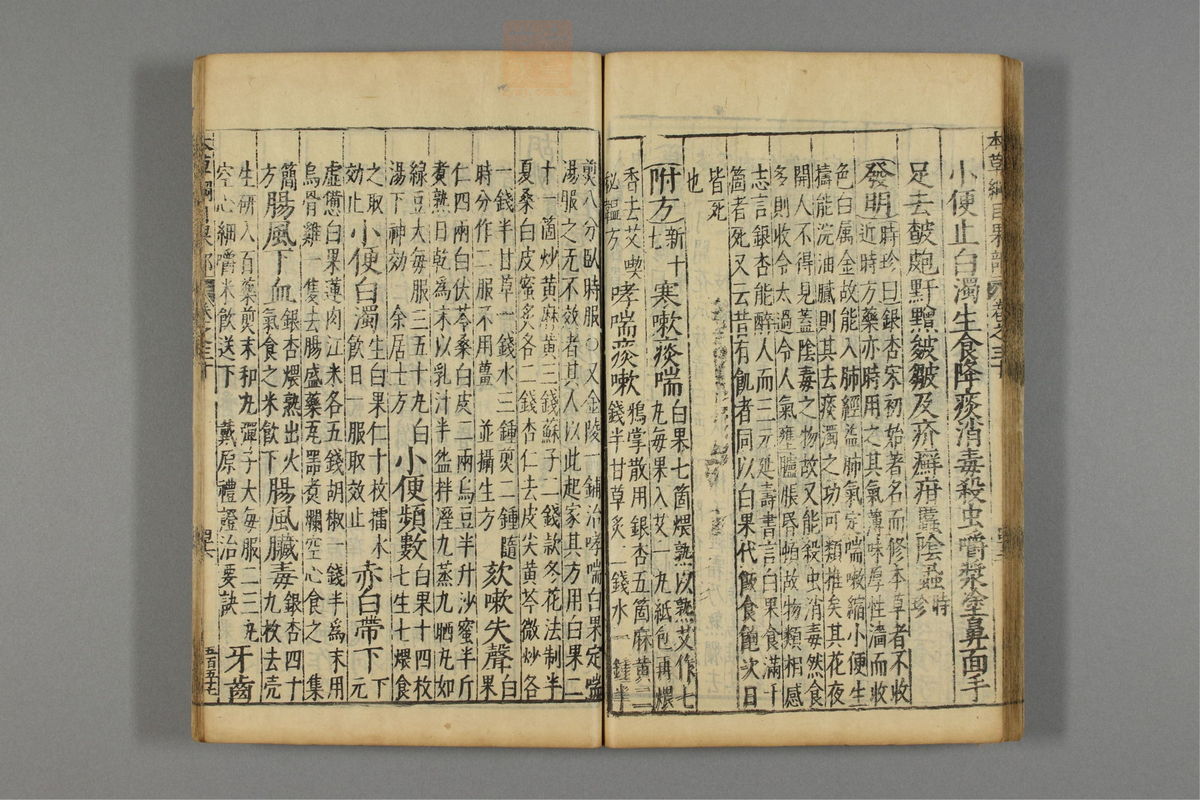 本草綱目果部 卷之三十
小便止白濁生食降痰消毒殺虫嚼漿塗鼻面手
足去皶皰䵟䵴皴皺及疥癬疳䘌陰蝨時珍
發明時珍曰銀杏宋初始著名而修本草者不收
近時方藥亦時用之其氣薄味厚性濇而收
色白属金故能入肺經益肺氣定喘嗽縮小便生
擣能浣油膩則其去痰濁之功可類推矣其花夜
開人不得見蓋陰毒之物故又能殺虫消毒然食
多則收令太過令人氣壅臚脹昏頓故物類相感
志言銀杏能醉人而三元延壽書言白果食滿千
箇者死又云昔有飢者同以白果代飯食飽次日
皆死
也
附方新十七寒嗽痰喘白果七箇煨熟以熟艾作七
丸每果入艾一丸紙包再煨
香去艾喫哮喘痰嗽鴨掌散用銀杏五箇麻黃二
秘韞方錢半甘草炙二錢水一鍾半
煎八分臥時服○又金陵一鋪治哮喘白果定喘
湯服之无不效者其人以此起家其方用白果二
十一箇炒黃麻黃三錢蘇子二錢款冬花法制半
夏桑白皮蜜炙各二錢杏仁去皮尖黃芩微炒各
一錢半甘草一錢水三鍾煎二鍾隨
時分作二服不用薑 並攝生方欬嗽失聲白果
仁四兩白伏苓桑白皮二兩烏豆半升沙蜜半斤
煮熟日乾為末以乳汁半盌拌溼九蒸九晒丸如
綠豆大每服三五十丸白
湯下神効 余居士方小便頻數白果十四枚
七生七煨食
之取
效止小便白濁生白果仁十枚擂水
飲日一服取效止赤白帶下下元
虛憊白果蓮肉江米各五錢胡椒一錢半為末用
烏骨雞一隻去腸盛藥瓦器煮爛空心食之 集
簡
方腸風下血銀杏煨熟出火
氣食之米飲下腸風臟毒銀杏四十
九枚去壳
生研入百藥煎末和丸彈子大每服二三丸
空心細嚼米飲送下 戴原禮證治要訣牙齒
本草綱目果部 卷之三十